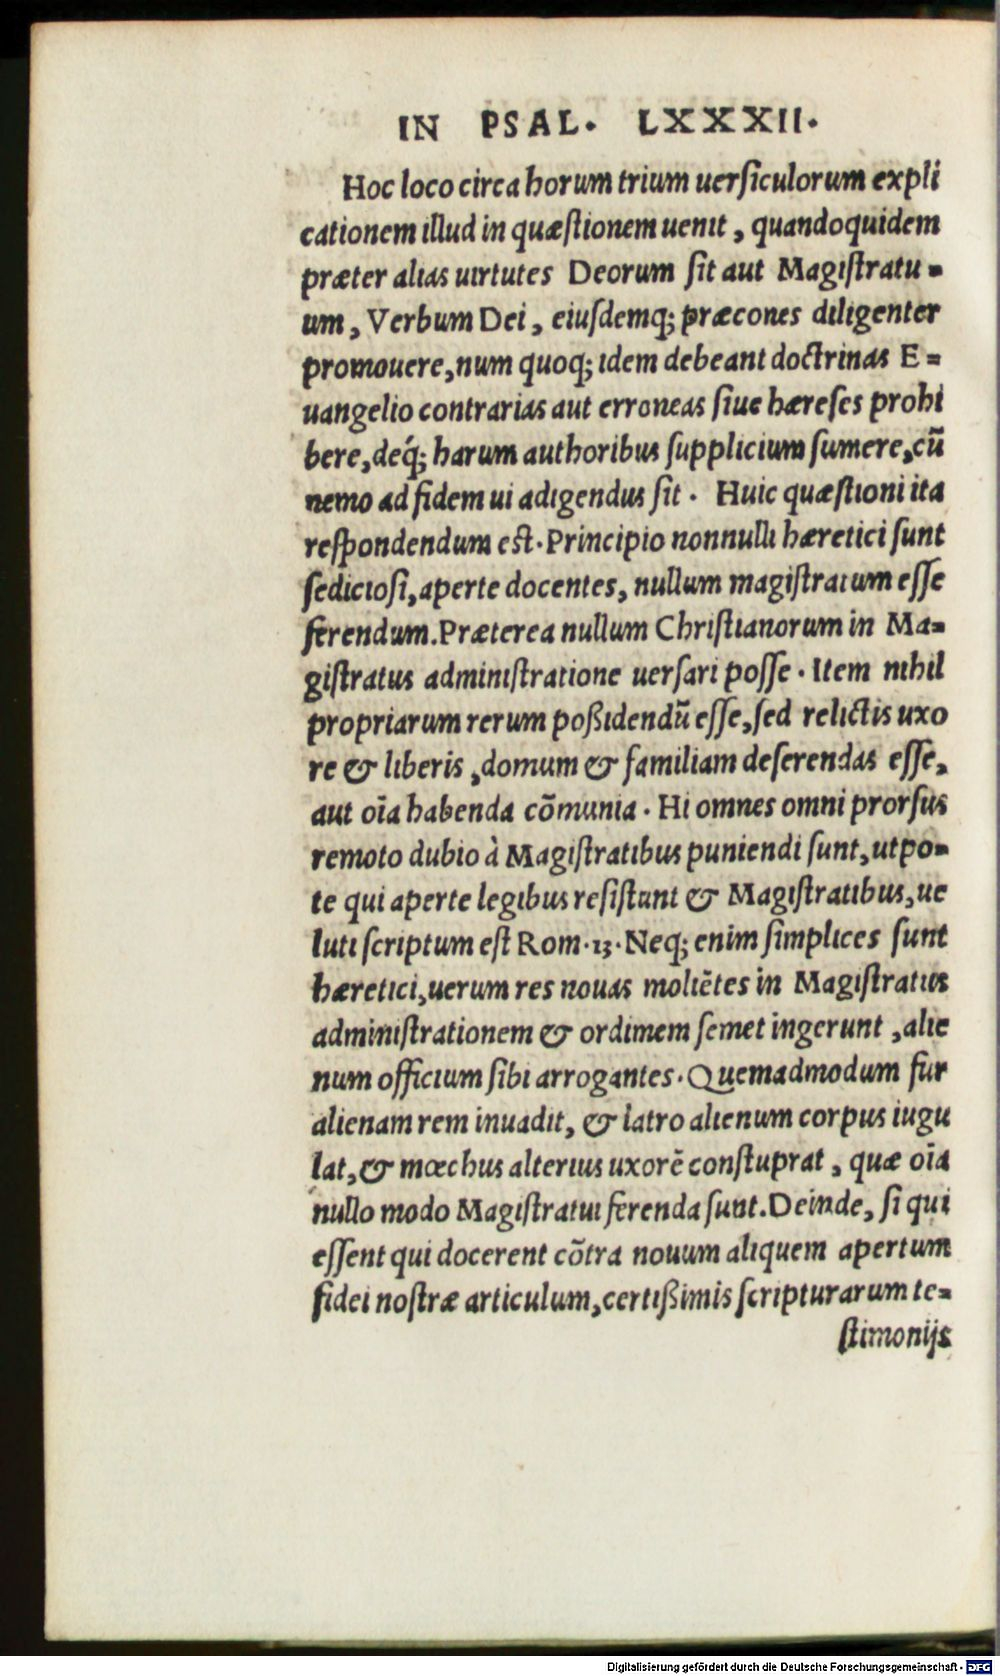 IN PSAL. LXXXII.
Hoc loco circa horum trium uersiculorum expli
cationem illud in quæstionem uenit, quandoquidem
præter alias uirtutes Deorum sit aut Magistratu=
um, Verbum Dei, eiusdemq; præcones diligenter
promouere, num quoq; idem debeant doctrinas E=
uangelio contrarias aut erroneas siue hæreses prohi
bere, deq́; harum authoribus supplicium sumere, cū
nemo ad fidem ui adigendus sit. Huic quæstioni ita
respondendum est. Principio nonnulli hæretici sunt
sediciosi, aperte docentes, nullum magistratum esse
ferendum. Præterea nullum Christianorum in Ma=
gistratus administratione uersari posse. Item nihil
propriarum rerum poßidendū esse, sed relictis uxo
re & liberis, domum & familiam deserendas esse,
aut oīa habenda cōmunia. Hi omnes omni prorsus
remoto dubio à Magistratibus puniendi sunt, utpo=
te qui aperte legibus resistunt & Magistratibus, ue
luti scriptum est Rom. 13. Neq; enim simplices sunt
hæretici, uerum res nouas moliētes in Magistratus
administrationem & ordinem semet ingerunt, alie
num officium sibi arrogantes. Quemadmodum fur
alienam rem inuadit, & latro alienum corpus iugu
lat, & mœchus alterius uxorē constuprat, quæ oīa
nullo modo Magistratui ferenda sunt. Deinde, si qui
essent qui docerent cōtra nouum aliquem apertum
fidei nostræ articulum, certißimis scripturarum te=
stimonijs
Digitalisierung gefördert durch die Deutsche Forschungsgemeinschaft - DFG